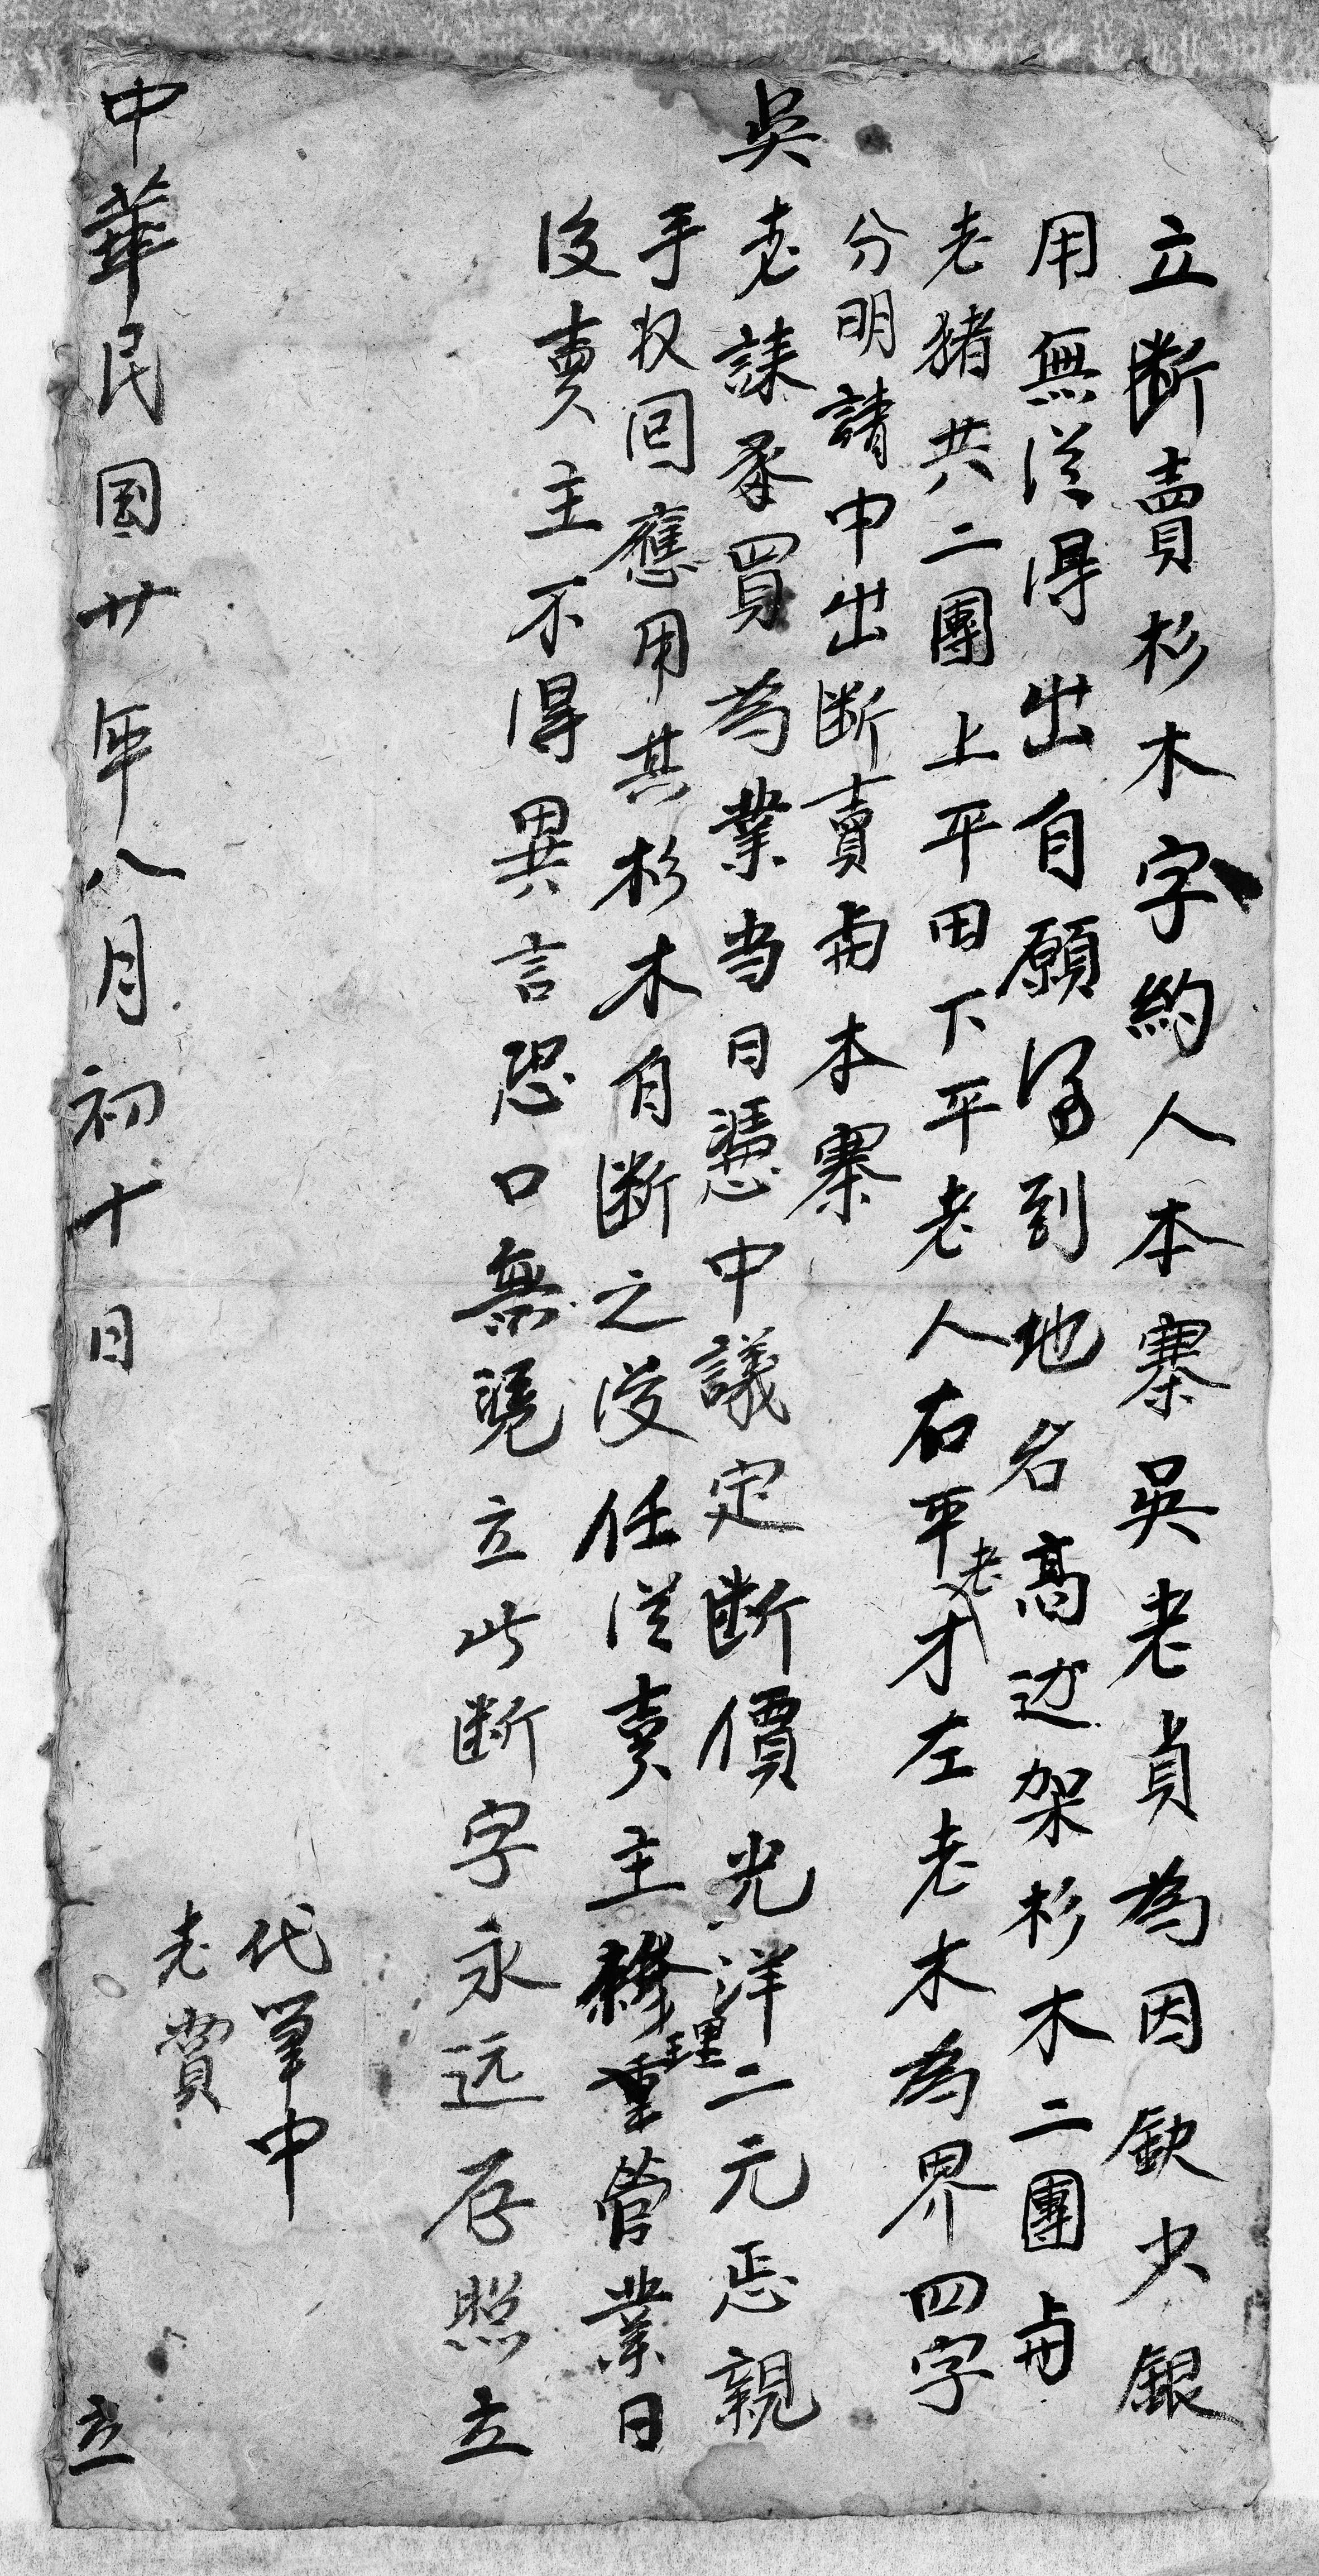 立断賣杉木字約人本寨吳老貞為因欽少銀
用無從得出自願将到地名高边架杉木二團与
老猪共二團上平田下平老人右平老才左老木為界四字
分明請中出断賣与本寨
吳老誄承買為業当日憑中議定断價光洋二元恁親
手収回應用其杉木自断之後任從賣主修理管業日
後賣主不得異言恐口無凴立此断字永远存照立
代筆中
老賞
中華民國廿年八月初十日 立